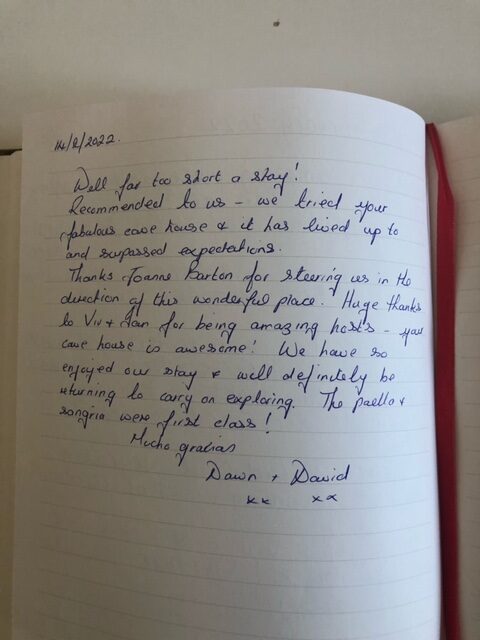 14/8/2022.
Well far too short a stay!
Recommended to us - we tried your
fabulous cave house & it has lived up to
and surpassed expectations.
Thanks Joanne Barton for steering us in the
direction of this wonderful place. Huge thanks
to Viv + Ian for being amazing hosts - your
cave house is awesome! We have so
enjoyed our stay & will definitely be
returning to carry on exploring. The paella &
sangria were first class!
Mucho gracias
Dawn + David
xx xx